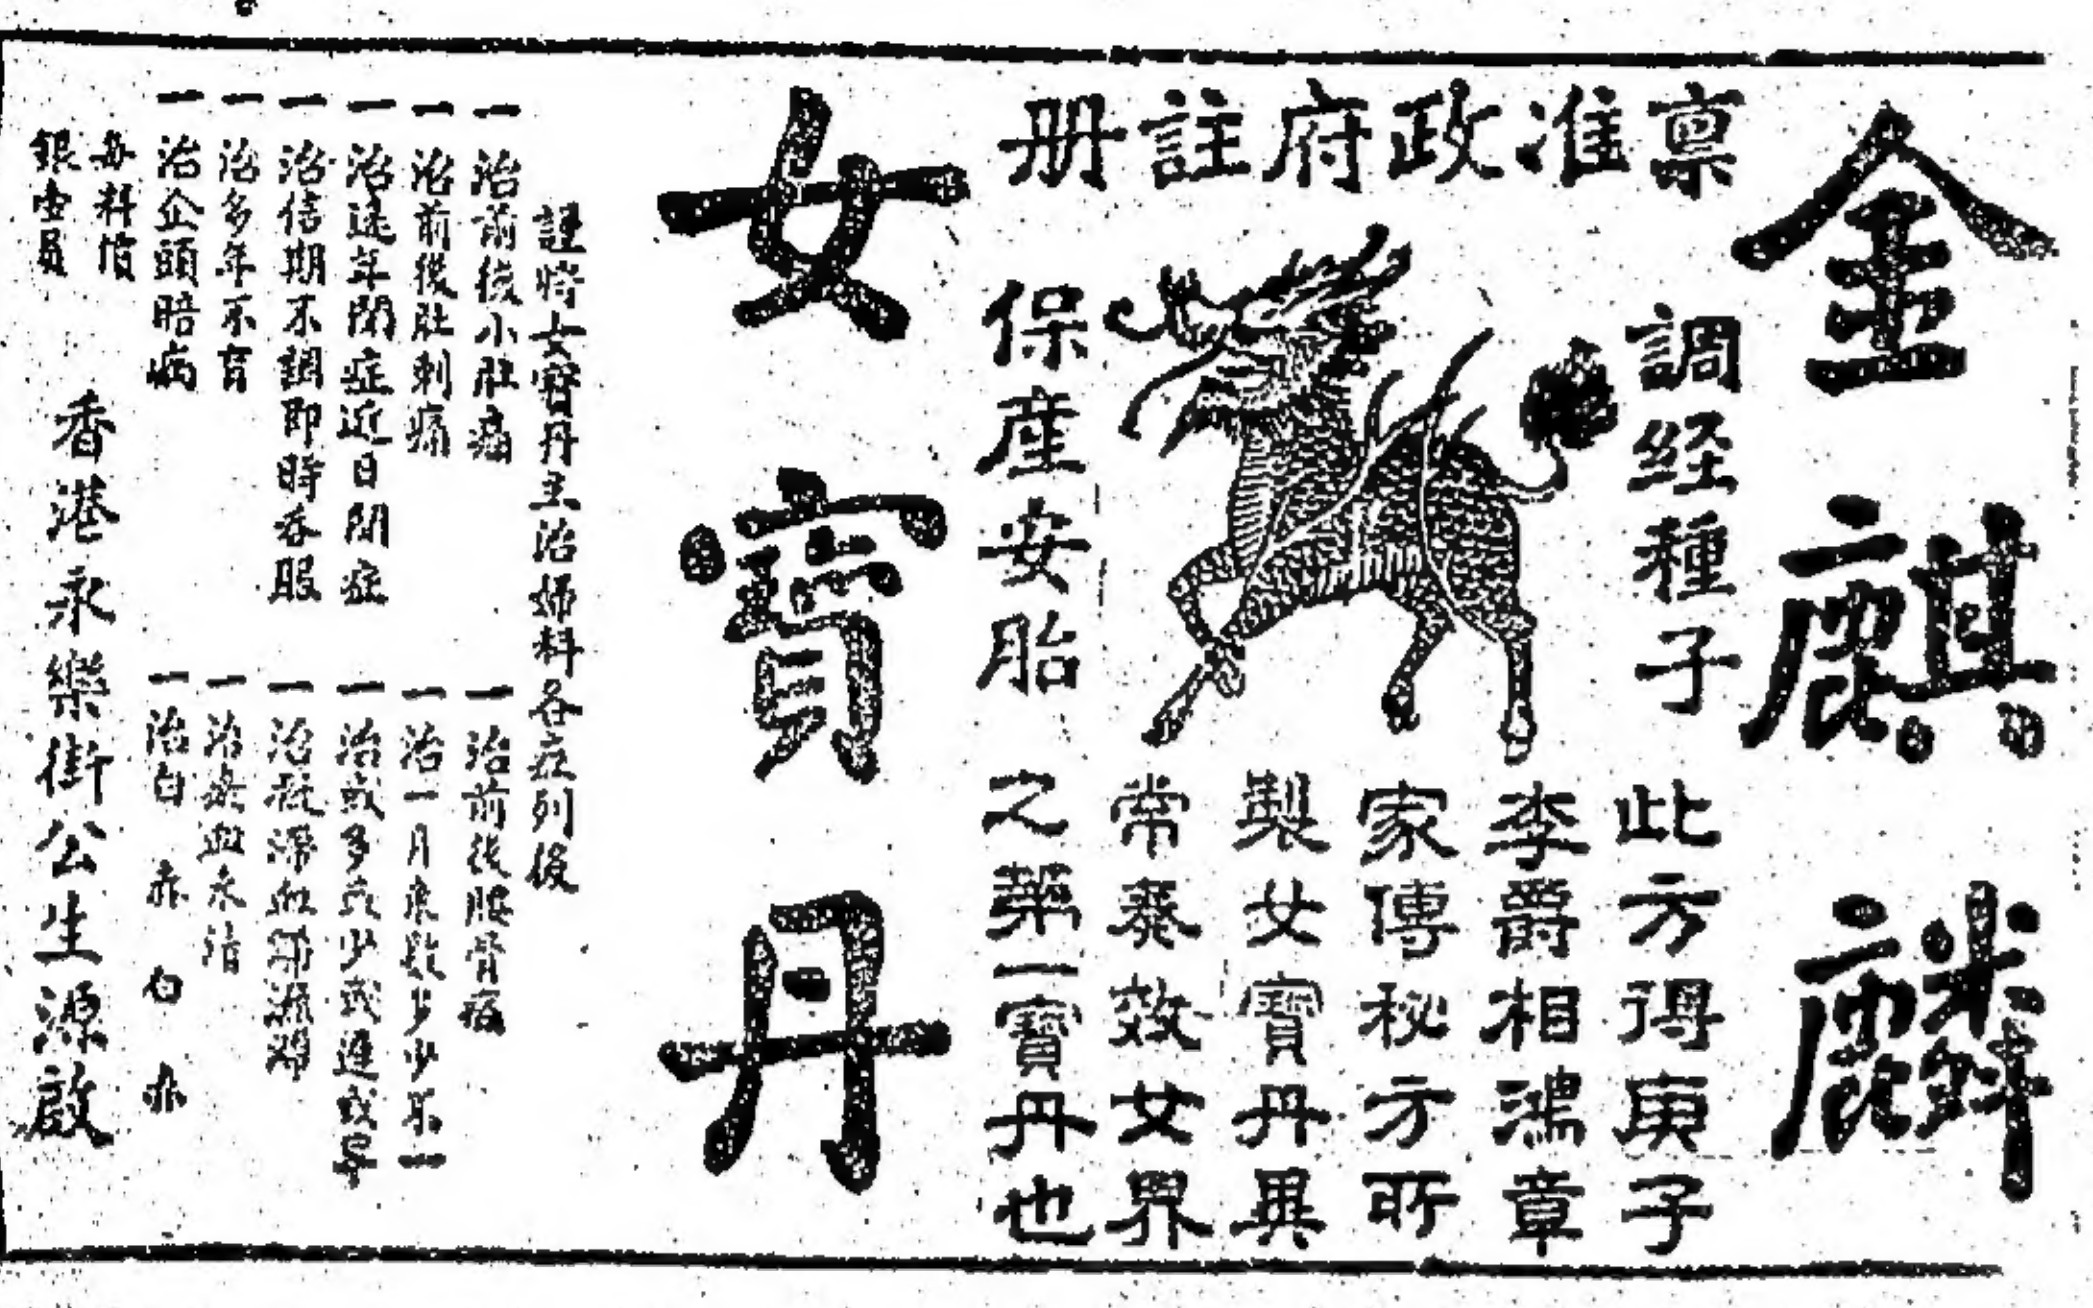 金麒麟
稟准政府註册
調経種子
保産安胎
此方得庚子
李爵相鴻章
家傳秘方所
製女寶丹異
常奏效女界
之第一寶丹也
女寶丹
謹將女寶丹主治婦科各症列後
一治前後小肚痛
一治前後肚刺痛
一治遠年閉症近日閉症
一治信期不調即時吞服
一治多年不育
一治企頭暗病
一治前後腰骨痛
一治一月來數次少不一
一治或多或少或遲或早
一治凝滯血
一治瘀血永清
一治白赤白赤
每料價
銀壹員
香港永樂街公生源啟